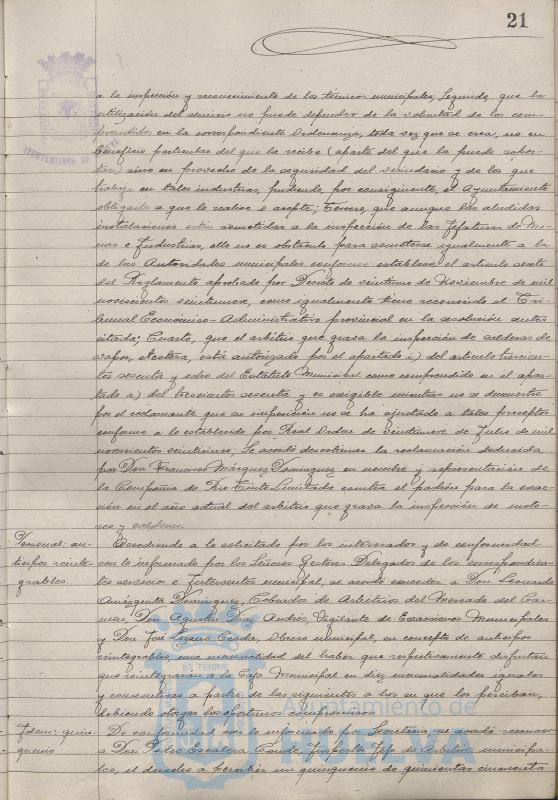 21
a la inspección y reconocimiento de los técnicos municipales; Segundo, que la
utilización del servicio no puede depender de la voluntad de los com-
prendidos en la correspondiente Ordenanza, toda vez que se crea, no en
beneficio particular del que la recibe (aparte del que la puede
sino en provecho de la seguridad del vecindario y de los que
trabajan en tales industrias, pudiendo por consiguiente, el Ayuntamiento
obligarle a que lo realice o acepte; Tercero, que aunque las aludidas
instalaciones estén sometidas a la inspección de las Jefaturas de Mi-
nas e Industrias, ello no es obstáculo para someterse igualmente a la
de las Autoridades municipales conforme establece el artículo sexto
del Reglamento aprobado por Decreto de veintiuno de Noviembre de mil
novecientos veintinueve, como igualmente tiene reconocido el Tri-
bunal Económico-Administrativo provincial en la resolución antes
citada; Cuarto, que el arbitrio que grava la inspección de calderas de
vapor, etcétera, está autorizado por el apartado i) del artículo trescien-
tos sesenta y ocho del Estatuto Municipal como comprendido en el apar-
tado a) del trescientos sesenta y es exigible mientras no se demuestre
por el reclamante que su imposición no se ha ajustado a tales preceptos
conforme a lo establecido por Real Orden de veintinueve de Julio de mil
novecientos veinticinco; Se acordó desestimar la reclamación deducida
por Don Francisco Márquez Domínguez en nombre y representación de
la Compañía de Rio-Tinto Limitada contra el padrón para la exac-
ción en el año actual del arbitrio que grava la inspección de moto-
res y calderas.
Personal: an-
ticipos reinte-
grables.
Accediendo a lo solicitado por los interesados y de conformidad
con lo informado por los Señores Gestores Delegados de los correspondien-
tes servicios e Interventor municipal, se acordó conceder a Don Leonardo
Domínguez, Cobrador de Arbitrios del Mercado del Car-
men, Don Agustín Díaz Andrés, Vigilante de Exacciones Municipales
y Don José Lozano Cerda, Obrero municipal, en concepto de anticipos
reintegrables, una mensualidad del haber que respectivamente disfrutan
que reintegrarán a la Caja Municipal en diez mensualidades iguales
y consecutivas a partir de las siguientes a los en que los perciban,
debiendo otorgar los oportunos compromisos.
Idem: quin-
quenio
De conformidad con lo informado por Secretaría se acordó reconocer
a Don Pedro Escalera Conde, Inspector Jefe de Arbitrios municipa-
les, el derecho a percibir un quinquenio de quinientas cincuenta
ET TERRA
Ayuntamiento de
HUELVA